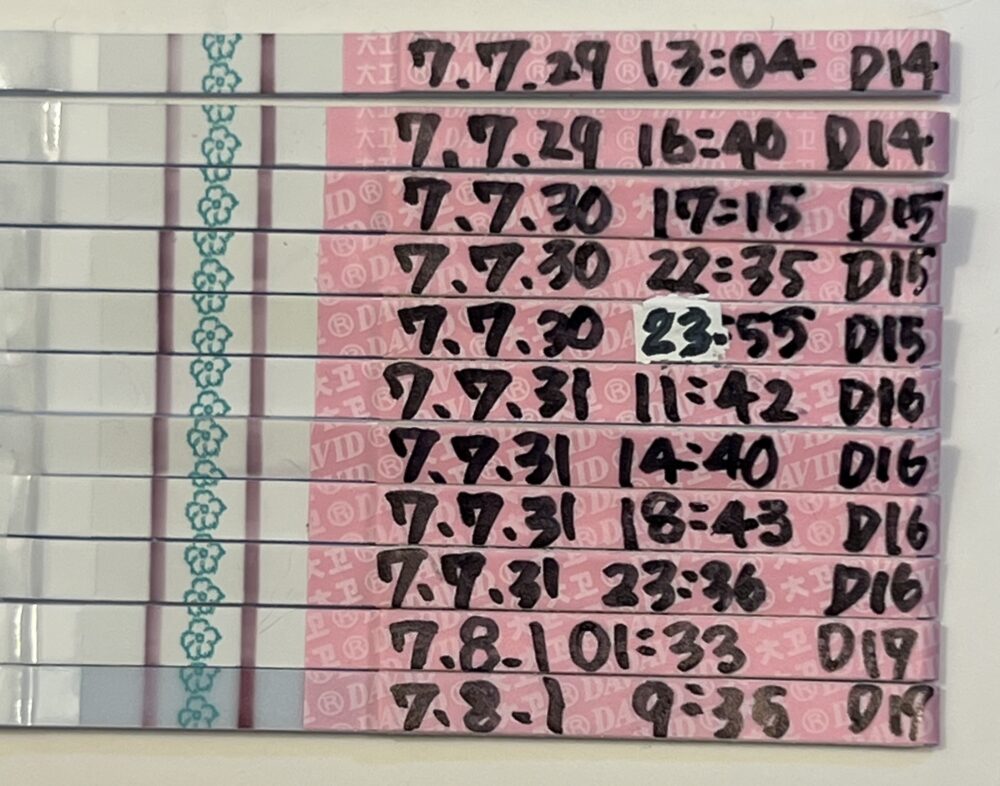 7.7.29 13:04 D14
7.7.29 16:40 D14
7.7.30 17:15 D15
7.7.30 22:35 D15
7.7.30 23:55 D15
7.7.31 11:42 D16
7.7.31 14:40 D16
7.7.31 18:43 D16
7.7.31 23:36 D16
7.8.1 01:33 D17
7.8.1 9:35
大卫® DAVID